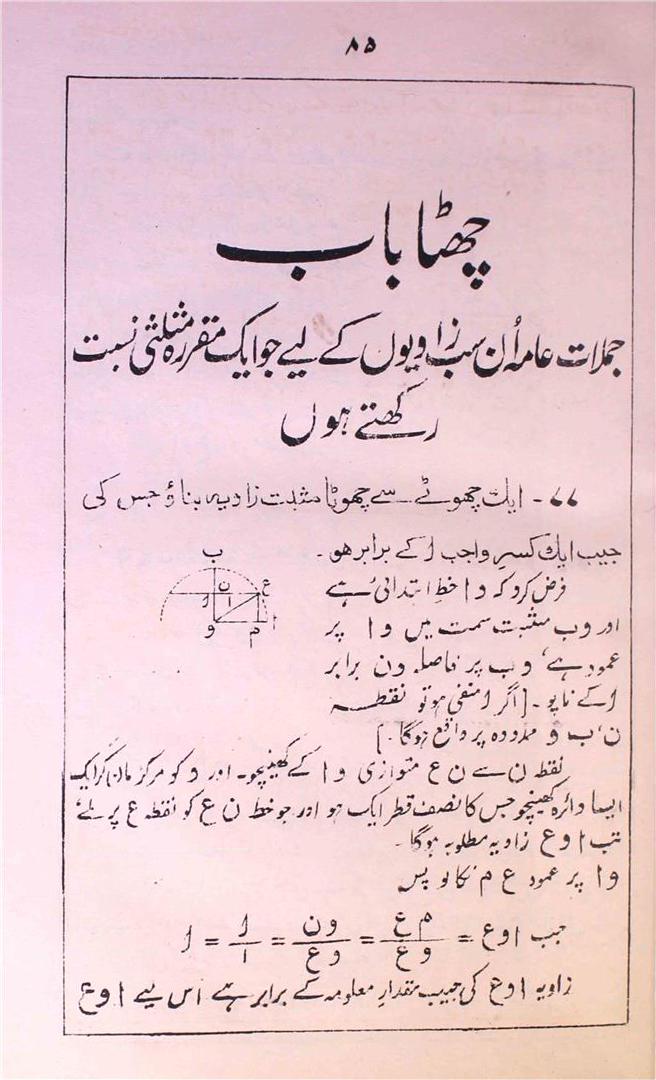 ۸۵
چھٹا باب
جملات عامہ اُن سب زاویوں کے لیے جو ایک مقررہ مثلثی نسبت
رکھتے ہوں
۷۷ - ایک چھوٹے سے چھوٹا مثبت زاویہ بناؤ جس کی
جیب ایک کسرِ واجب ا کے برابر ہو۔
فرض کرو کہ و ا خطِ ابتدائی ہے
اور و ب مثبت سمت میں و ا پر
عمود ہے، و ب پر فاصلہ و ن برابر
ا کے ناپو۔ [اگر ا منفی ہو تو نقطہ
ن، ب و ممدودہ پر واقع ہوگا۔]
ب
ن
ع
ا
ا
و
م
ا
نقطہ ن سے ن ع متوازی و ا کے کھینچو۔ اور و کو مرکز مان کر ایک
ایسا دائرہ کھینچو جس کا نصف قطر ایک ہو اور جو خط ن ع کو نقطہ ع پر ملے،
تب ا و ع زاویہ مطلوبہ ہوگا۔
و ا پر عمود ع م نکالو پس
جیب ا و ع = م ع / و ع = و ن / و ع = ا / ۱ = ا
زاویہ ا و ع کی جیب مقدارِ معلومہ کے برابر ہے اس لیے ا و ع